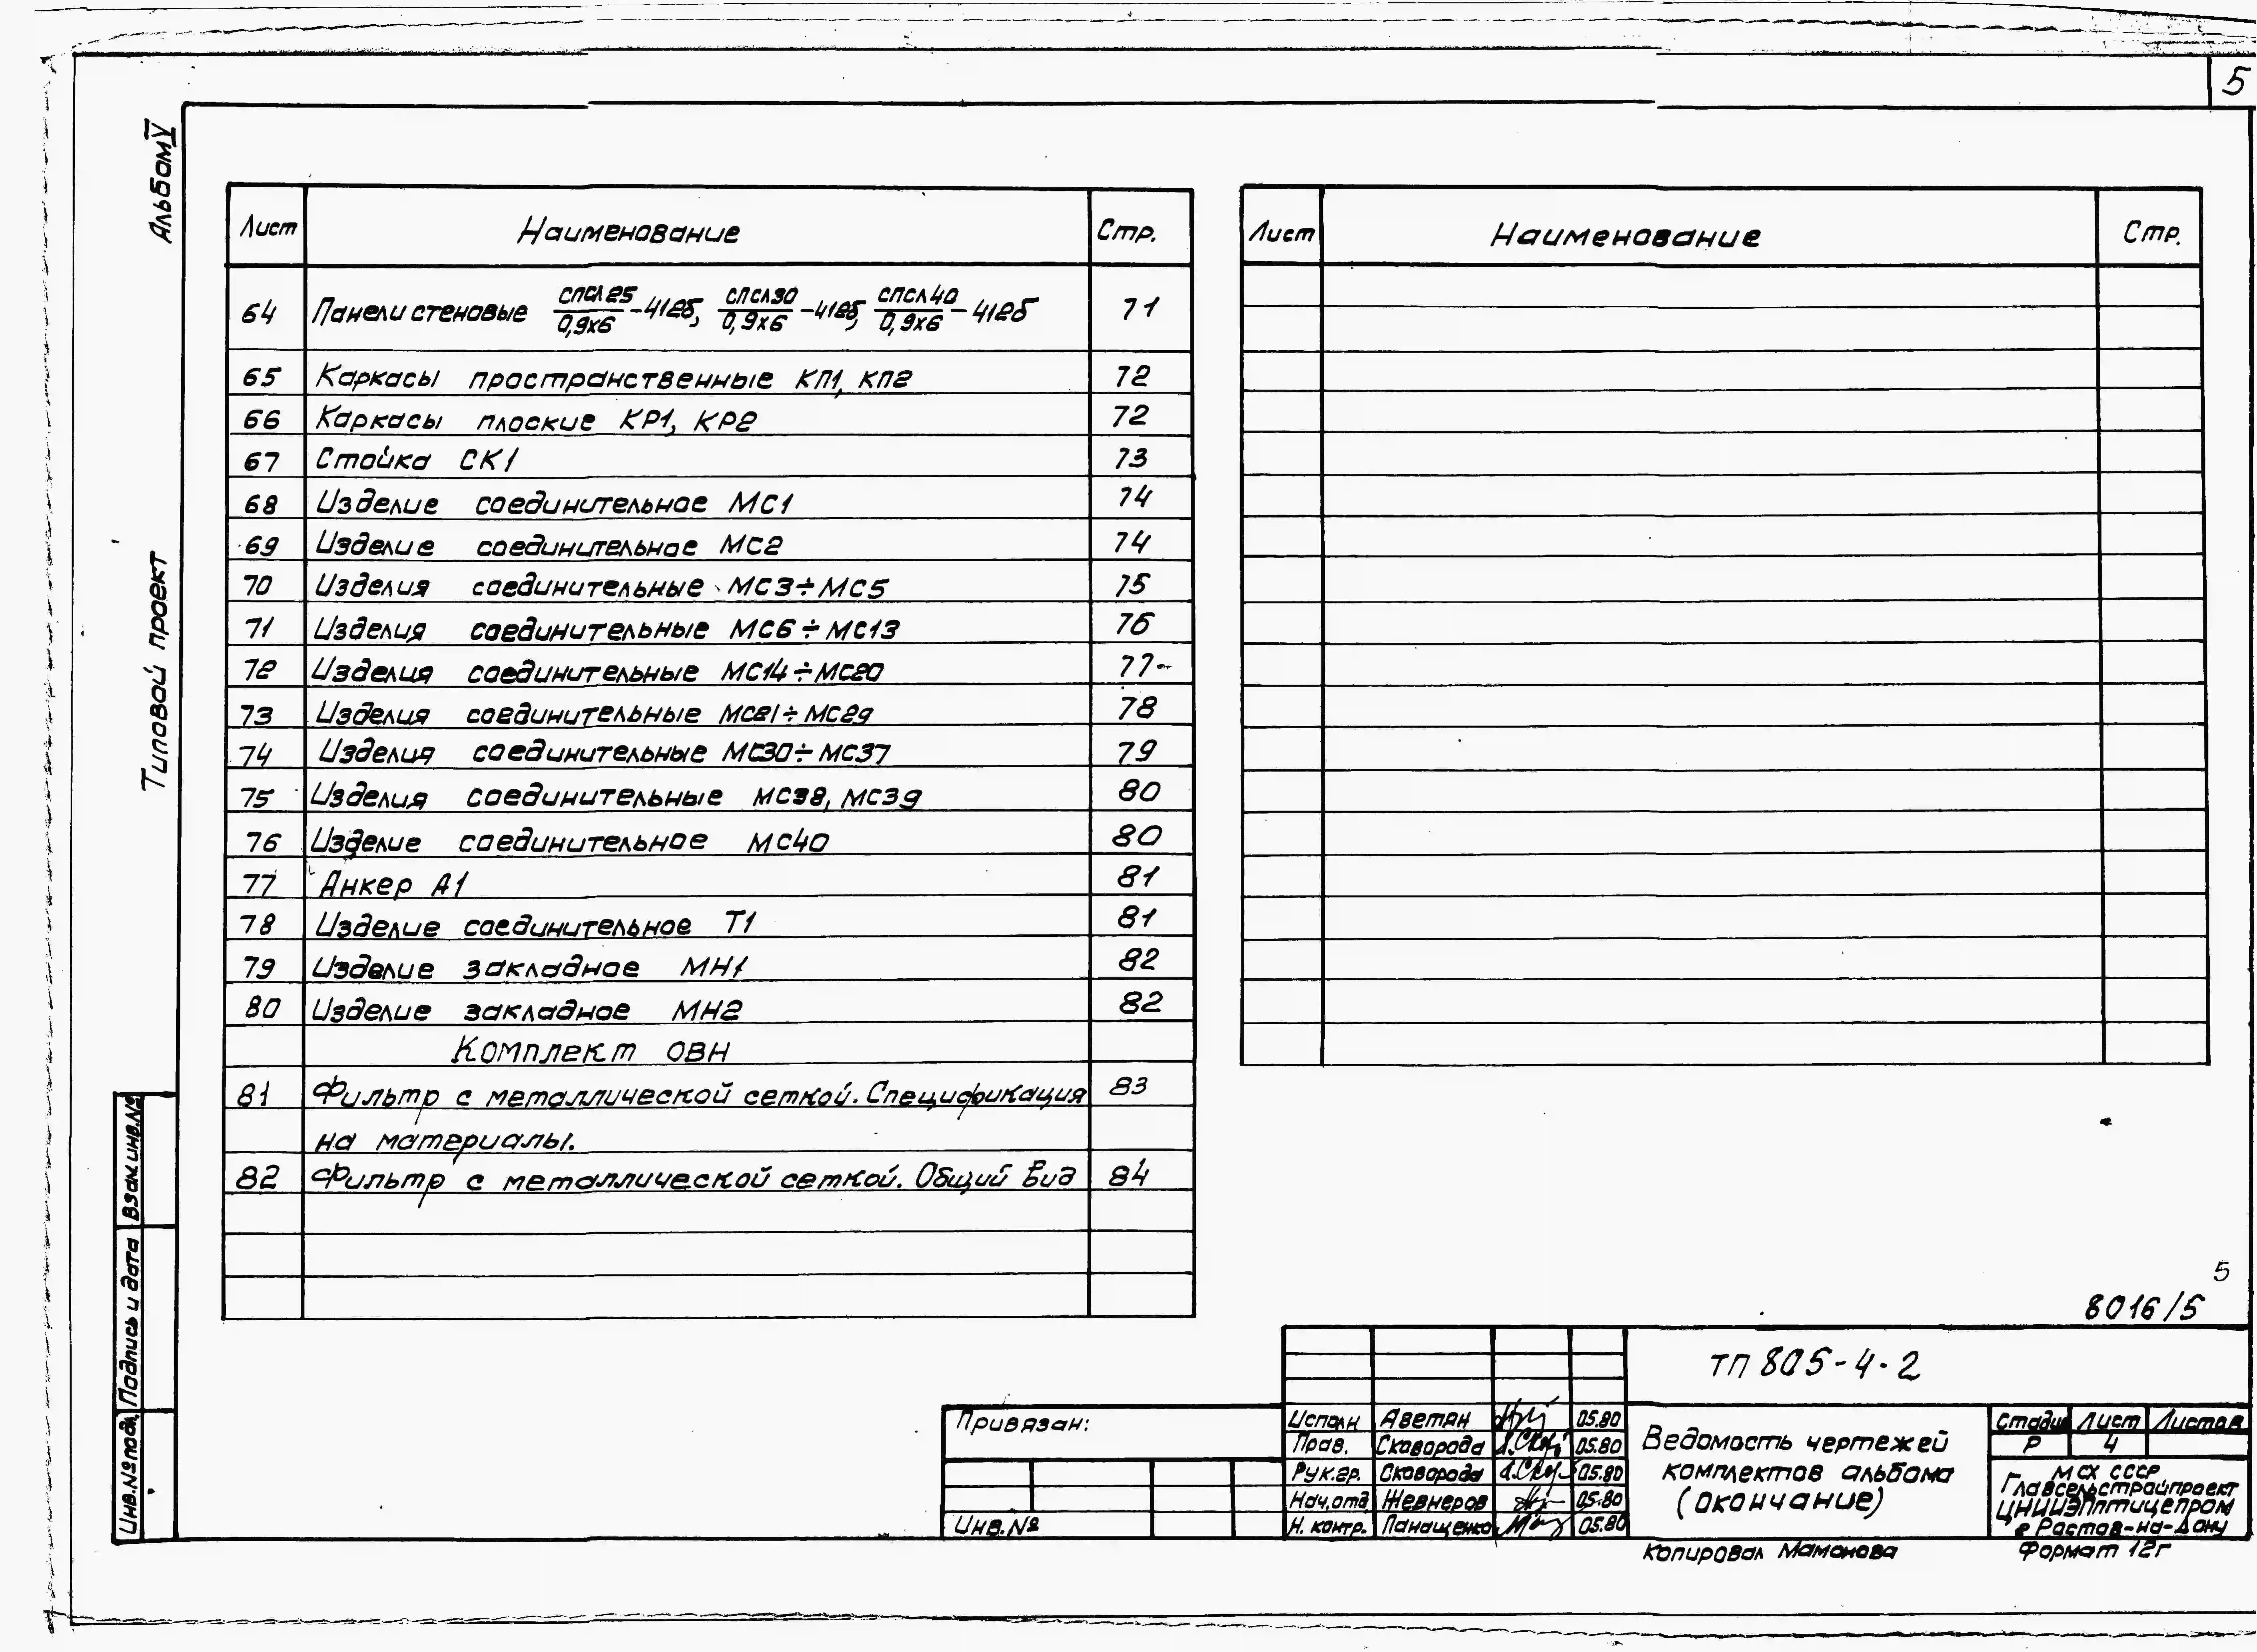 5
Альбом V
Типовой проект
Лист Наименование Стр.
64 Панели стеновые СПСЛ25/0,9х6-4126, СПСЛ30/0,9х6-4126, СПСЛ40/0,9х6-4126 71
65 Каркасы пространственные КП1, КП2 72
66 Каркасы плоские КР1, КР2 72
67 Стойка СК1 73
68 Изделие соединительное МС1 74
69 Изделие соединительное МС2 74
70 Изделия соединительные МС3÷МС5 75
71 Изделия соединительные МС6÷МС13 76
72 Изделия соединительные МС14÷МС20 77
73 Изделия соединительные МС21÷МС29 78
74 Изделия соединительные МС30÷МС37 79
75 Изделия соединительные МС38, МС39 80
76 Изделие соединительное МС40 80
77 Анкер А1 81
78 Изделие соединительное Т1 81
79 Изделие закладное МН1 82
80 Изделие закладное МН2 82
Комплект ОВН
81 Фильтр с металлической сеткой. Спецификация 83
на материалы.
82 Фильтр с металлической сеткой. Общий вид 84
Лист Наименование Стр.
Взам.инв.№
Подпись и дата
Инв.№ подл.
5
8016/5
ТП 805-4-2
Привязан:
Инв.№
Исполн. Аветян 05.80
Пров. Сковорода 05.80
Рук.гр. Сковорода 05.80
Нач.отд Жевнеров 05.80
Н. контр. Панащенко 05.80
Ведомость чертежей
комплектов альбома
(окончание)
Стадия Лист Листов
Р 4
МСХ СССР
Главсельстройпроект
ЦНИИЭПптицепром
г Ростов-на-Дону
Копировал Мамонова
Формат 12г